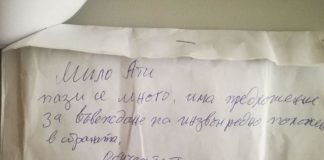 Мило Ати
пази се много, има предложение
за въвеждане на извънредно положение
в страната.